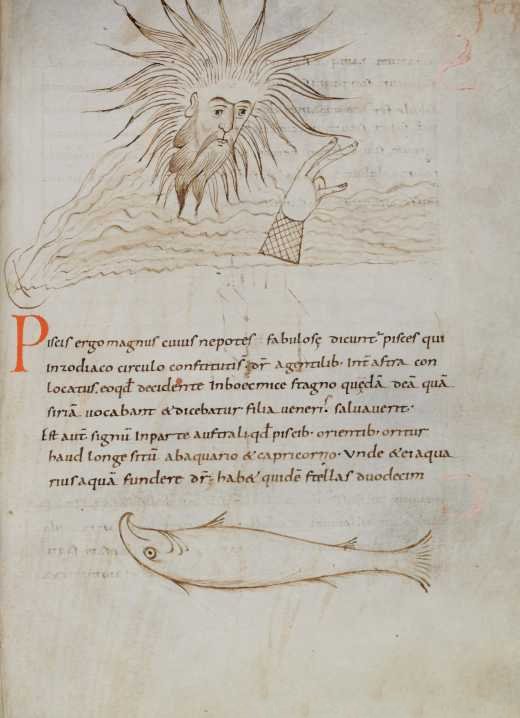 Piscis ergo magnus cuius nepotes fabulosę dicunt᷒ pisces qui
inzodiaco circulo constitutis dr̅ agentilib· Int̅ astra con
locatus. eoqd̅ decidente Inboemice stagno quędā deā quā
siriā uocabant & dicebatur filia ueneris saluauerit·
Est aut̅ signū Inparte australi· qd̅ piscib· orientib· oritur
haud longe sitū abaquario & capricorno· Vnde & ei aqua
rius aquā fundere dr̅· hab& quidē stellas duodecim